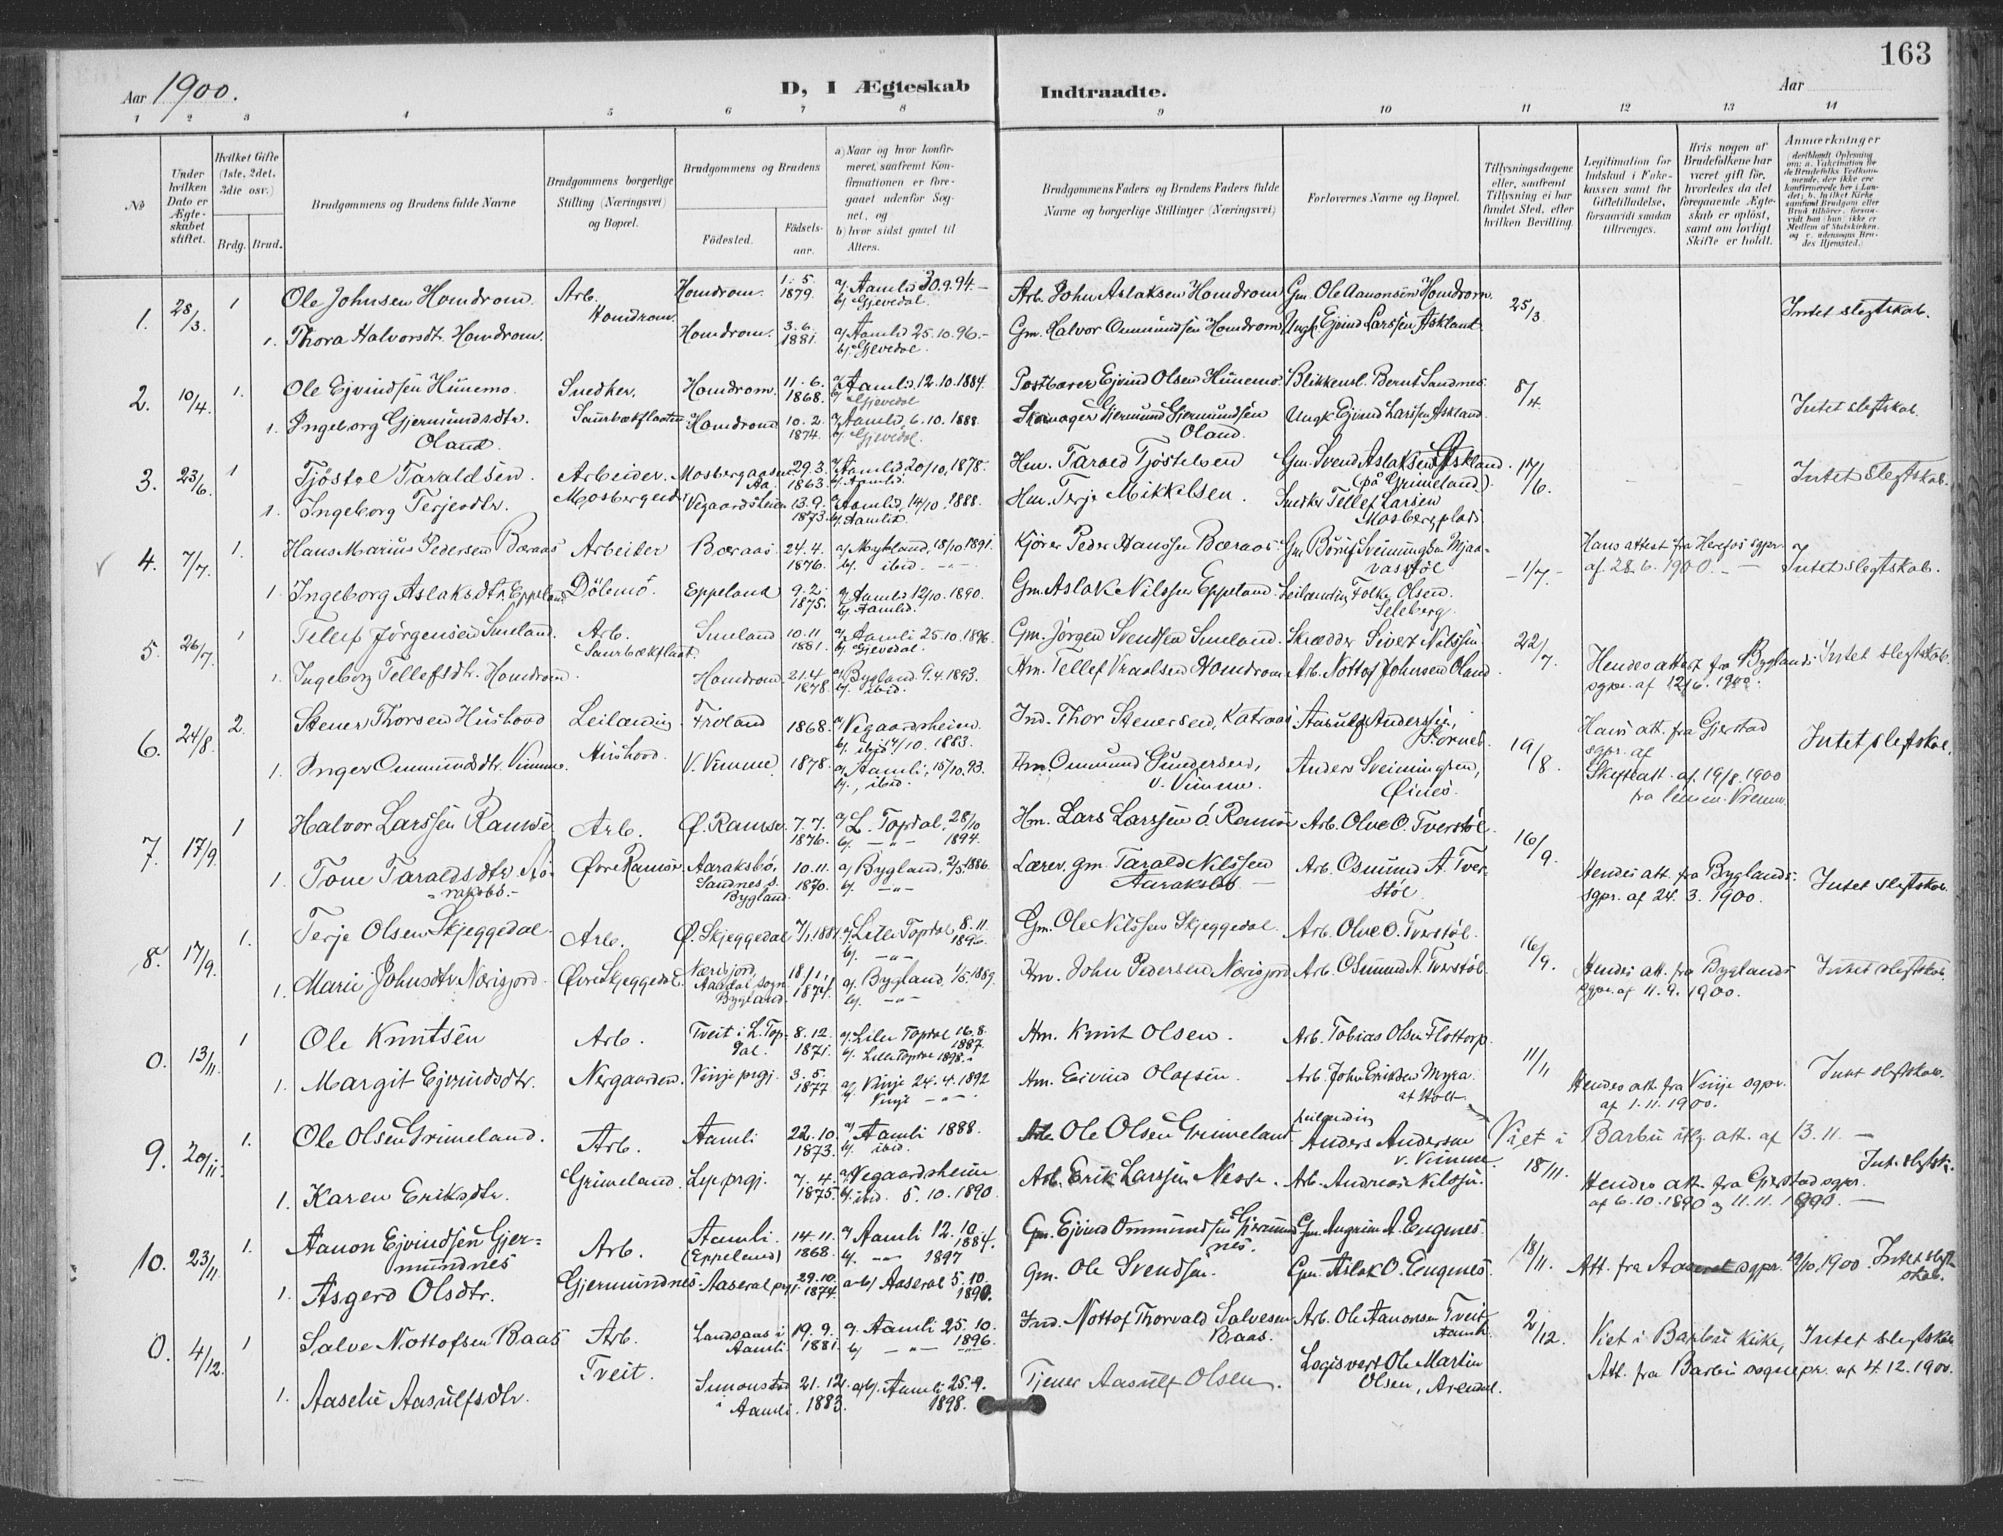 163
Aar 1900.
D, I Ægteskab Indtraadte.
Aar
1 2 3 4 5 6 7 8 9 10 11 12 13 14
No
Under hvilken Dato er Ægteskabet stiftet.
Hvilket Gifte (1ste, 2det, 3die osv.)
Brdg. Brud.
Brudgommens og Brudens fulde Navne
Brudgommens borgerlige Stilling (Næringsvei) og Bopæl.
Brudgommens og Brudens
Födested. Födselsaar.
a) Naar og hvor konfirmeret, saafremt Konfirmationen er foregaaet udenfor Sognet, og
b) hvor sidst gaaet til Alters.
Brudgommens Faders og Brudens Faders fulde Navne og borgerlige Stillinger (Næringsvei)
Forlovernes Navne og Bopæl.
Tillysningsdagene eller, saafremt Tillysning ei har fundet Sted, efter hvilken Bevilling.
Legitimation for Indskud i Enkekassen samt for Giftetilladelse, forsaavidt saadan tiltrænges.
Hvis nogen af Brudefolkene har været gift før, hvorledes da det foregaaende Ægteskab er opløst, samt om lovligt Skifte er holdt.
Anmærkninger
1. 28/3 1 Ole Johnsen Homdrom. Arb. Homdrom. Homdrom. 1. 5. 1879. a) Aamli 30.9.94. b) Gjevedal Arb. John Aslaksen Homdrom Gm. Ole Aanonsen Homdrom. 25/3 Intet slegtskab.
1. Thora Halvorsdtr. Homdrom. Homdrom. 3. 6. 1881. a) Aamli 25.10.96. b) Gjevedal. Gm. Halvor Ommundsen Homdrom Ungk. Ejvind Larssen Askland.
2. 10/4. 1. Ole Ejvindsen Hunemo. Snedker. Saurbækflaaten Homdrom. 11. 6. 1868. a) Aamli 12.10.1884. b) Gjevedal Postbærer Ejvind Olsen Hunemo. Blikkensl. Bernt Sandnes. 8/4 Intet slegtskab.
1. Ingeborg Gjermundsdtr. Oland. Homdrom 10. 2. 1874. a) Aamli, 6.10.1888. b) Gjevedal. Skomager Gjermund Gjermundsen Oland. Ungk Ejvind Larssen Askland.
3. 23/6. 1 Tjöstol Taraldsen. Arbeider. Mosberg 29.3. 1863. a) Aamli 20/10, 1878. b) Aamli. Hm. Tarald Tjöstelsen Gm. Svend Aslaksen Askland. (på Grimeland) 17/6. Intet slegtskab.
1. Ingeborg Terjesdtr. Vegaardsheien 13.9. 1873. a) Aamli, 14/10. 1888. b) Aamli. Hm. Terje Mikkelsen. Snedker Tellef Larsen Mosbergplads
4. 7/7. 1. Hans Marius Pedersen Bæraas Arbeider Dölemo Bæraas 24.4. 1876. a) Mykland, 18/10 1891. b) ibid. Kjörer Peder Hanssen Bæraas. 1/7. Hans attest fra Herefos sgpr. af 28.6.1900. Intet slegtskab.
1. Ingeborg Aslaksdtr. Eppeland Eppeland 9.2. 1875. a) Aamli 12/10. 1890. b) Aamli. Gm. Aslak Nilssen Eppeland. Leilænding Folke Olsen. Seleberg.
5. 26/7. 1 Tellef Jørgensen Smeland. Arb. Saurbækflaat. Smeland 10.11 1881. a) Aamli 25.10.1896. b) Gjevedal. Gm. Jørgen Svendsen Smeland. Skrædder Sivert Nilssen 22/7. Hendes attest fra Byglands sgpr. af 12/6. 1900. Intet slegtskab.
1. Ingeborg Tellefsdtr. Homdrom. Homdrom 21.4. 1878. a) Bygland. 9.4.1893. b) ibid. Hm. Tellef Vraalsen Homdrom Arb. Nottof Johnsen Oland.
6. 24/8. 2. Stener Thorsen Hushovd Leilænding Hushovd. Froland 1868. a) Vegaardsheien. b) ibid. 14/10. 1883. Ind. Thor Stenersen, Aasulf Anderssen, 19/8. Hans att. fra Gjerstad sgpr. af Skifteatt. af 19/8.1900 Intet slegtskab.
1. Inger Ommundsdtr. Vimme. V. Vimme 1878. a) Aamli, 15/10. 93. b) ibid. Hm. Ommund Gundersen, v. Vimme. Anders Sveinungsen, Øines.
7. 17/9. 1 Halvor Larssen Ramse Arb. Øvre Ramse Ø. Ramse. 7.7. 1876. a) L. Topdal, 28/10 1894. Hm. Lars Larssen ö. Ramse Arb. Olve O. Tverstöl. 16/9.
1. Tone Taraldsdtr. Aaraksbö. Aaraksbö, Sandnes s. Bygland. 10.11. 1870. a) Bygland, 2/5.1886. Lærer, gm. Tarald Nilssen Aaraksbö Arb. Osmund A. Tverstöl. Hendes att. fra Byglands sgpr. af 24. 3. 1900. Intet slegtskab.
8. 17/9. 1. Terje Olsen Skjeggedal Arb. Øvre Skjeggedal. Ø. Skjeggedal a) Lille Topdal 8.11 1896. Gm. Ole Nilssen Skjeggedal. Arb. Olve O. Tverstöl. 16/9.
1. Mari Johnsdtr. Næsisjord. Aardal sogn. Bygland. 18/1 1874. a) Bygland, 1/5.1889. Hm. John Pedersen Arb. Osmund A. Tverstöl. Hendes att. fra Byglands sgpr. af 11. 9. 1900. Intet slegtskab.
0. 13/11. 1 Ole Knutsen Arb. Nergaarden. Tveit i L. Topdal. 8.12. 1871. a) Lille Topdal 16.8. 1887. b) Lille Topdal 1898. Hm. Knut Olsen. Arb. Tobias Olsen Flottorp. 11/11
1. Margit Ejvindsdtr. Vinje prgj. 3.5. 1877 a) Vinje 24.4.1892 b) Vinje Hm. Eivind Olafsen. Arb. John Eriksen Myra Hendes att. fra Vinje sgpr. af 1.11.1900. Intet slegtskab.
9. 20/11. 1. Ole Olsen Grimeland. Arb. Grimeland. Aamli 22.10. 1873. a) Aamli 1888. b) ibid. Arb. Ole Olsen Grimeland Leilænding Anders Andersen v. Vimme. Viet i Barbu iflg. att. af 13.11.
1. Karen Eriksdtr. 7.4. 1875. a) Vegaardsheien b) ibid. 5.10.1890. Arb. Erik Larssen Nesse. Arb. Andreas Nilssen. 18/11. Hendes att. fra Gjerstad sgpr. af 6.10.1890 og 11.11.1900. Int. slegtsk.
10. 23/11 1. Aanon Ejvindsen Gjermundnes Arb. Gjermundnes Aamli. (Eppeland) 14.11. 1868. a) Aamli 12.10. 1884. b) 1897 Gm. Ejvind Ommundsen Gjermundnes. Gm. Angrim A. Engenes. 18/11. Att. fra Aaseral sgpr. 19/10.1900 Intet slegtskab.
1. Asgerd Olsdtr. Aaseral prgj. 29.10. 1874. a-b) Aaseral 5.10. 1890. Gm. Ole Svendsen. Gm. Aslak O. Engenes.
0. 4/12. 1 Salve Nottofsen Baas Arb. Tveit. Landsaas i Aamli 19.9. 1881. a. Aamli 25.10. 1896. Ind. Nottof Thorvald Salvesen Baas. Arb. Ole Aanonsen Tveit Aamli. 2/12. Viet i Barbu kirke, Intet slegtskab
1. Aaselie Aasulfsdtr. Simonstad i Aamli. 21.12. 1883. a,b). Aamli 25.9. 1898. Tjener Aasulf Olsen. Logisvert Ole Martin Olsen, Arendal. Att. fra Barbu sognepr. af 4.12.1900.